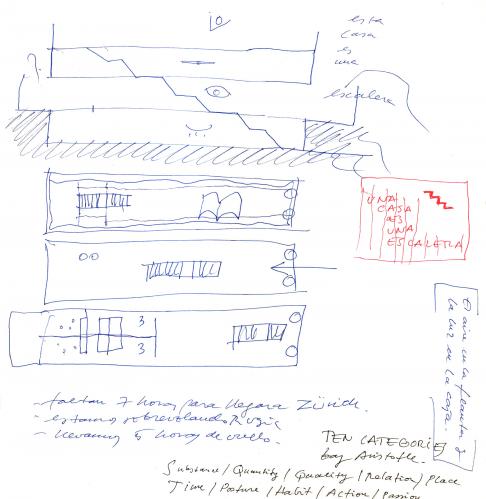 esta
casa
es
una
escalera
UNA
CASA
ES
UNA
ESCALERA
3
3
El aire en la planta y
la luz en la casa.
- faltan 7 horas para llegar a Zürich.
- estamos sobrevolando Rusia
- llevamos 5 horas de vuelo.
TEN CATEGORIES
by Aristotle.
Substance / Quantity / Quality / Relation / Place
Time / Posture / Habit / Action / Passion